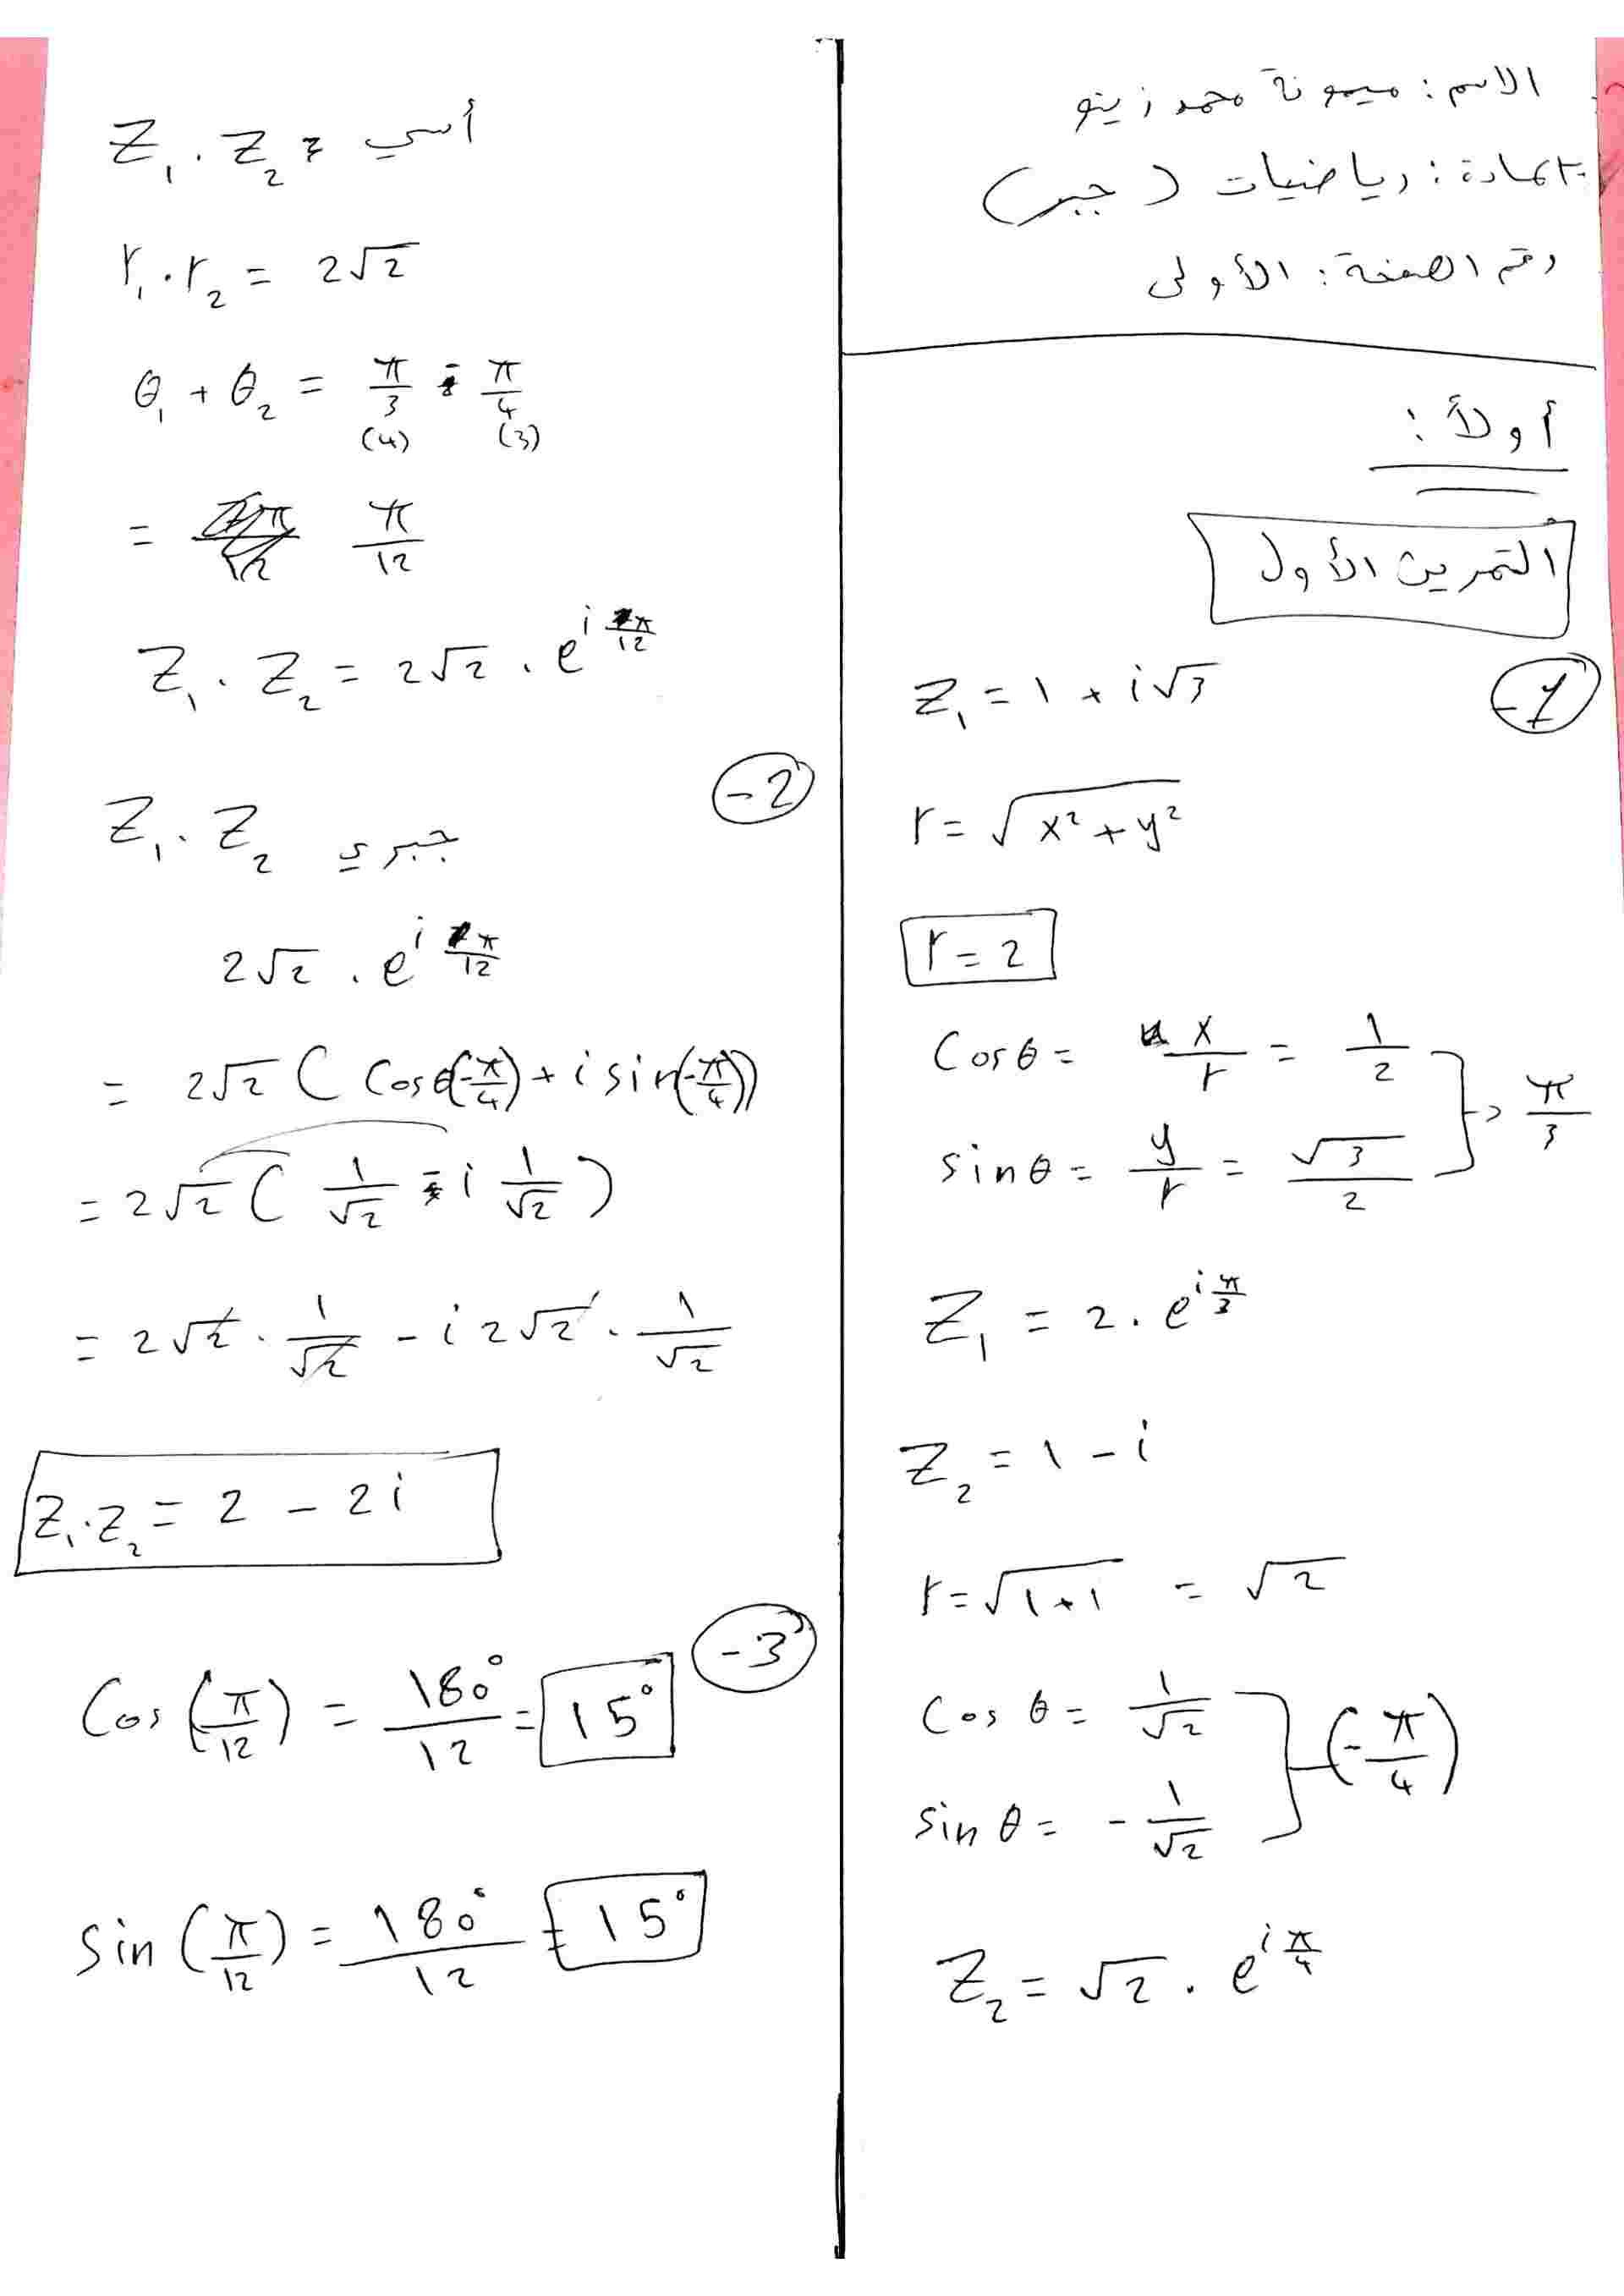 الاسم: ميمونة محمد زينو
المادة: رياضيات (جبر)
رقم الصفحة: الأولى
أولاً:
التمرين الأول
-1
Z₁ = 1 + i√3
r = √(x² + y²)
r = 2
Cos θ = x/r = 1/2
sin θ = y/r = √3/2
→ π/3
Z₁ = 2 . e^(i π/3)
Z₂ = 1 - i
r = √(1+1) = √2
Cos θ = 1/√2
sin θ = - 1/√2
(-π/4)
Z₂ = √2 . e^(i π/4)
Z₁ . Z₂ = أسي
r₁ . r₂ = 2√2
θ₁ + θ₂ = π/3 - π/4
(4) (3)
= π/12
Z₁ . Z₂ = 2√2 . e^(i π/12)
-2
Z₁ . Z₂ جبري
2√2 . e^(i π/12)
= 2√2 ( Cos(-π/4) + i sin(-π/4))
= 2√2 ( 1/√2 - i 1/√2 )
= 2√2 . 1/√2 - i 2√2 . 1/√2
Z₁ . Z₂ = 2 - 2i
-3
Cos (π/12) = 180°/12 = 15°
sin (π/12) = 180°/12 = 15°